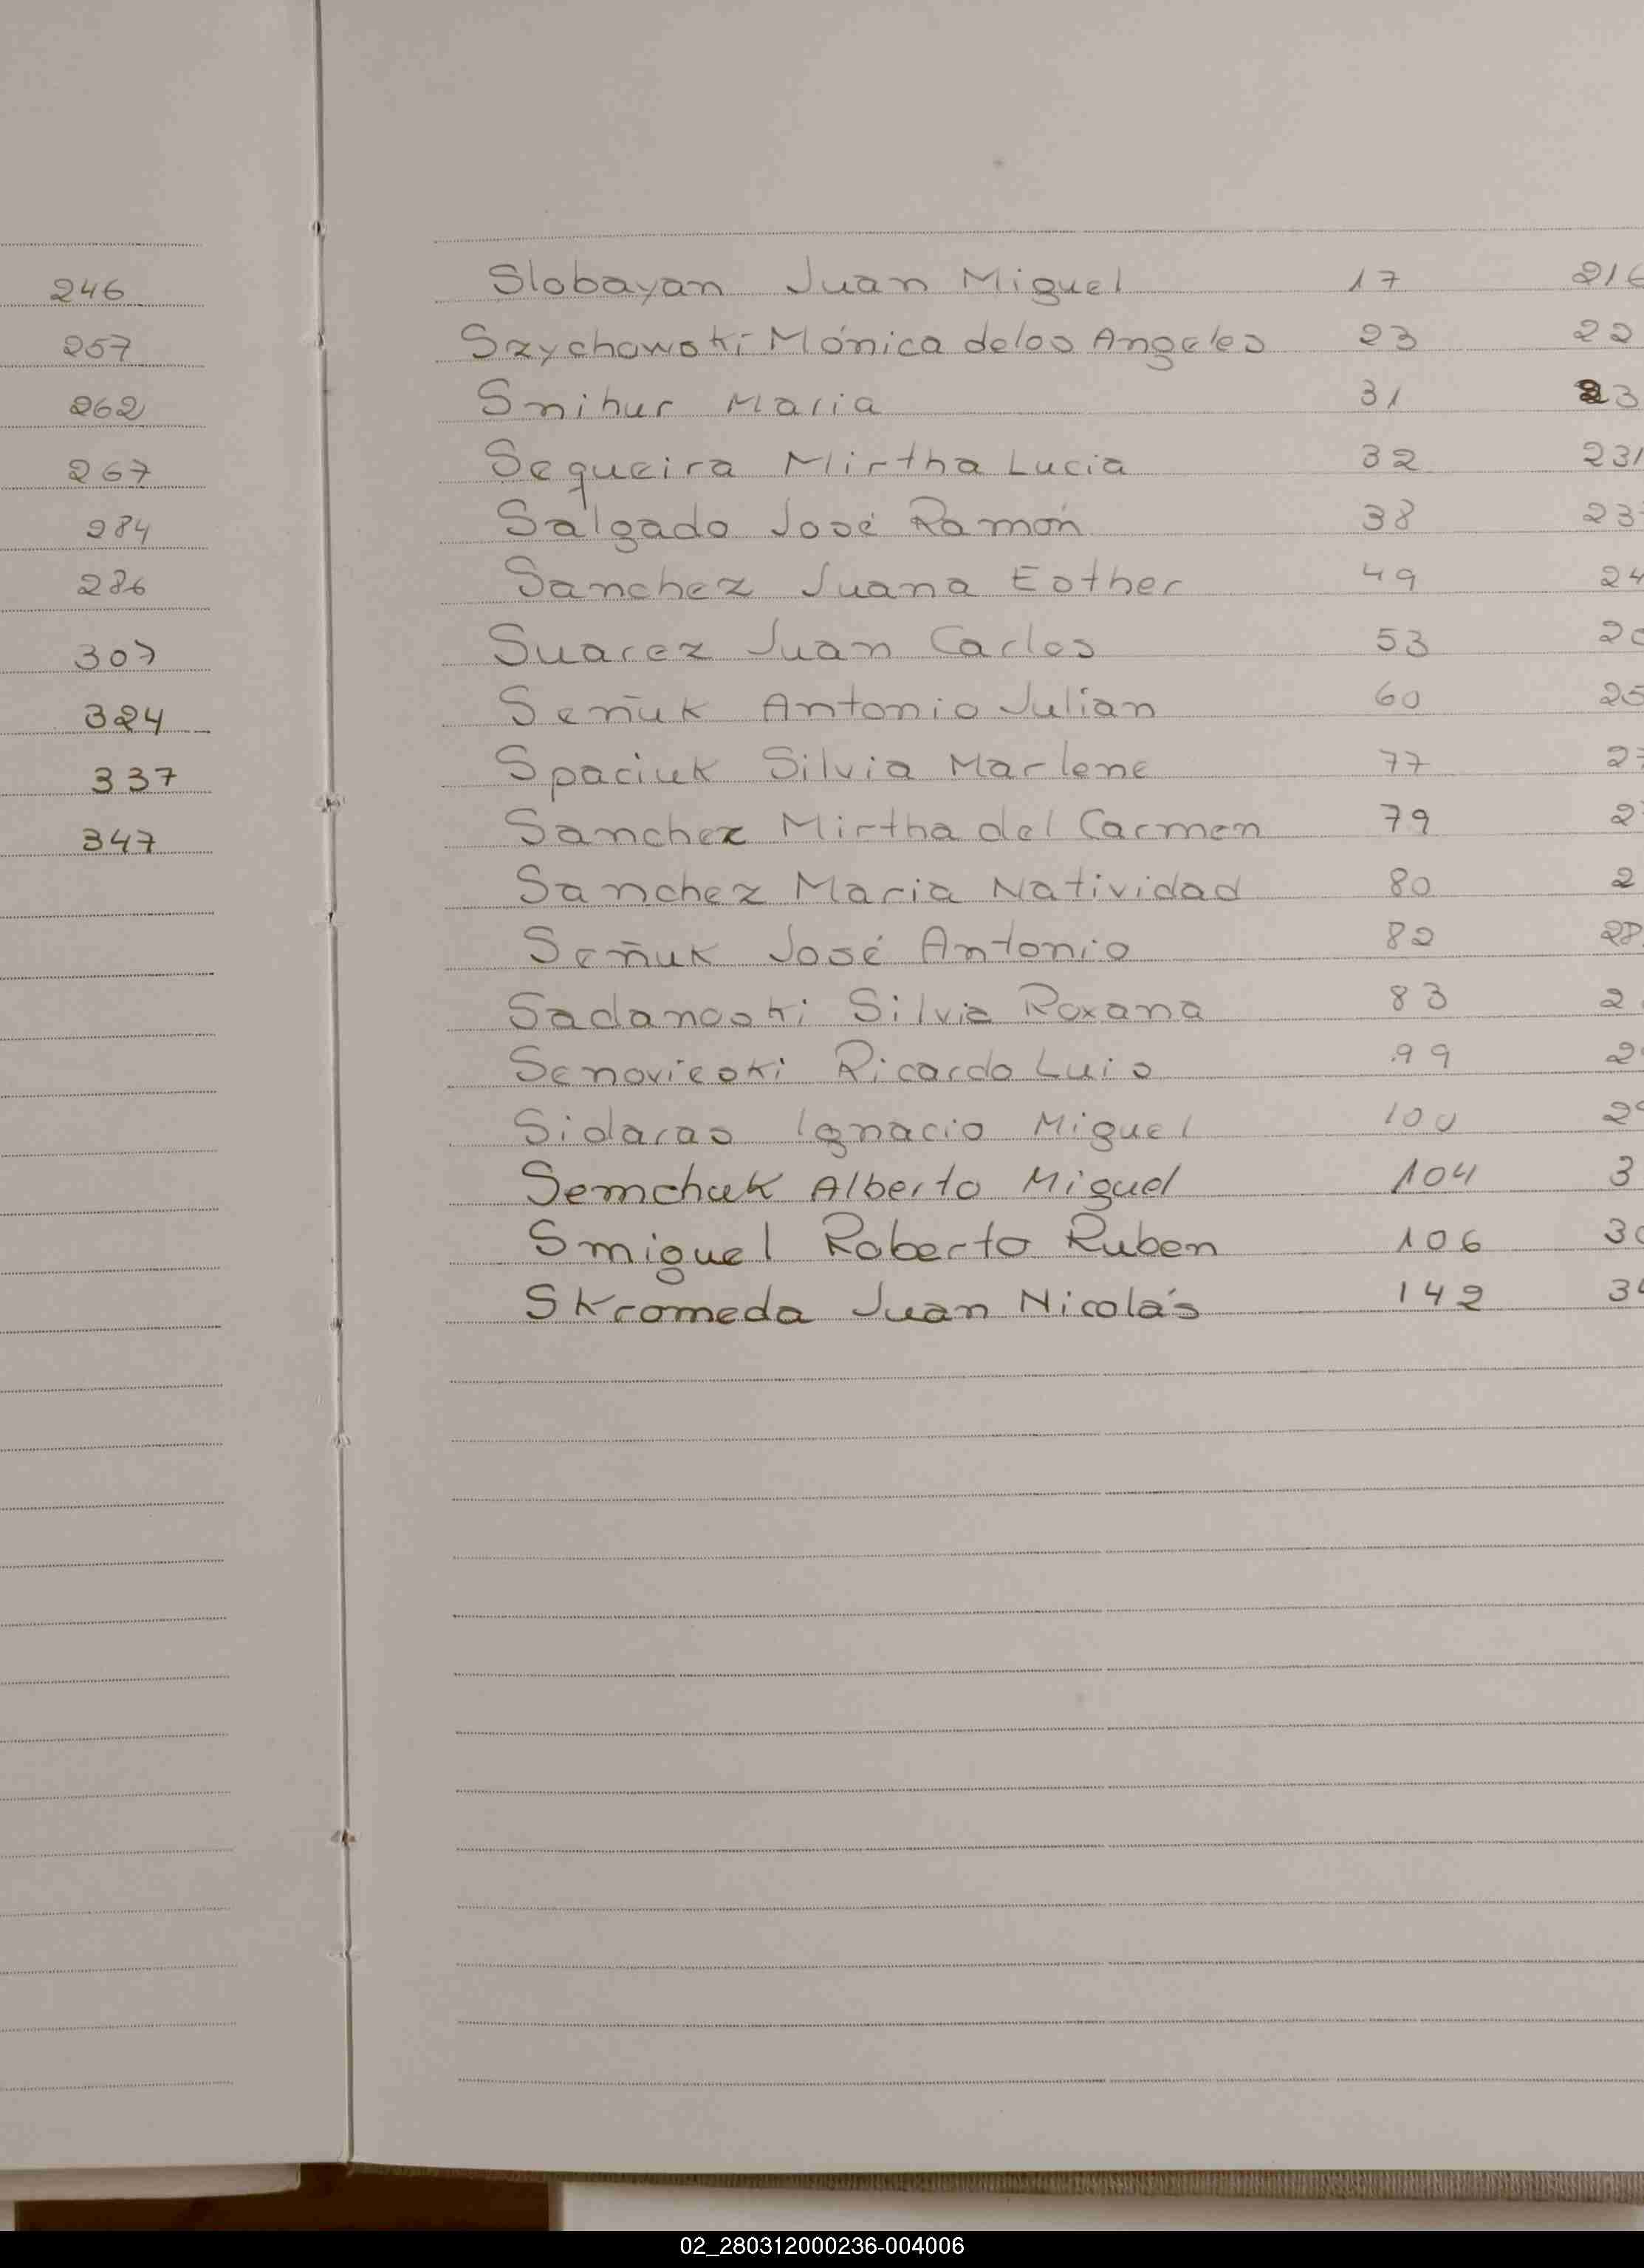 246
257
262
267
284
286
307
324
337
347
Slobayan Juan Miguel 17 216
Szychowski Mónica de los Angeles 23 22
Snihur Maria 31 23
Sequeira Mirtha Lucia 32 231
Salgado José Ramón 38 23
Sanchez Juana Esther 49 24
Suarez Juan Carlos 53
Señuk Antonio Julian 60 25
Spaciuk Silvia Marlene 77 27
Sanchez Mirtha del Carmen 79 2
Sanchez Maria Natividad 80 2
Señuk José Antonio 82 28
Sadanoski Silvia Roxana 83 2
Senovieski Ricardo Luis 99 2
Sidaras Ignacio Miguel 100 29
Semchuk Alberto Miguel 104 3
Smiguel Roberto Ruben 106 30
Skromeda Juan Nicolás 142 34
02_280312000236-004006